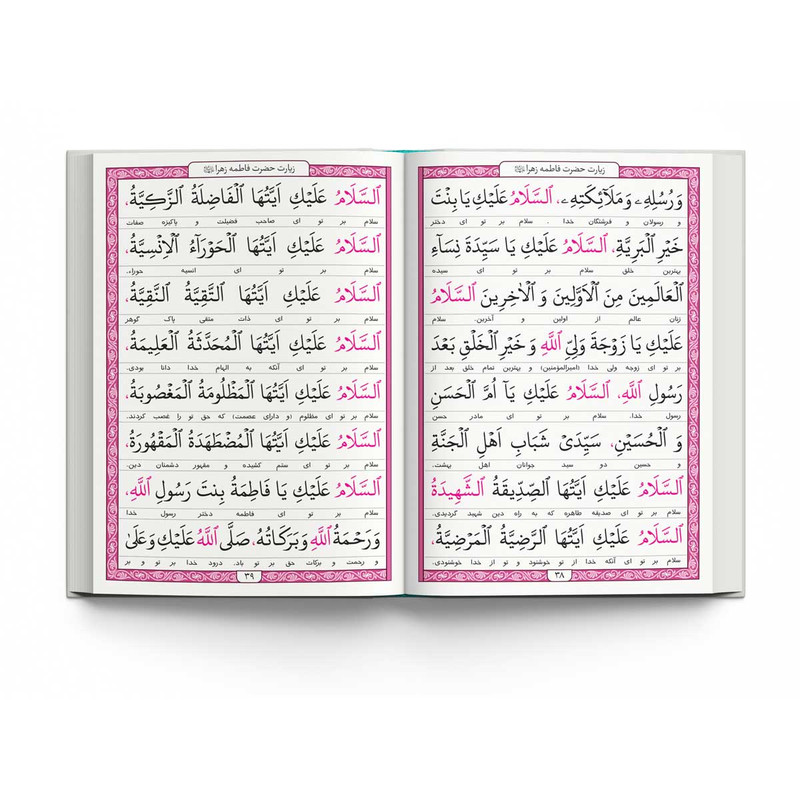 زیارت حضرت فاطمه زهرا
وَ رُسُلِهِ، وَ مَلَآئِكَتِهِ، اَلسَّلَامُ عَلَيْكِ يَا بِنْتَ
و رسولان و فرشتگان خدا . سلام بر تو ای دختر
خَيْرِ الْبَرِيَّةِ، اَلسَّلَامُ عَلَيْكِ يَا سَيِّدَةَ نِسَآءِ
بهترین خلق سلام بر تو ای سیده
الْعَالَمِينَ مِنَ الْاَوَّلِينَ وَ الْاٰخِرِينَ اَلسَّلَامُ
زنان عالم از اولین و آخرین. سلام
عَلَيْكِ يَا زَوْجَةَ وَلِيِّ اللّٰهِ وَ خَيْرِ الْخَلْقِ بَعْدَ
بر تو ای زوجه ولی خدا (امیرالمؤمنین) و بهترین تمام خلق بعد از
رَسُولِ اللّٰهِ، اَلسَّلَامُ عَلَيْكِ يَآ اُمَّ الْحَسَنِ
رسول خدا. سلام بر تو ای مادر حسن
وَ الْحُسَيْنِ، سَيِّدَىْ شَبَابِ اَهْلِ الْجَنَّةِ
و حسین دو سید جوانان اهل بهشت.
اَلسَّلَامُ عَلَيْكِ اَيَّتُهَا الصِّدِّيقَةُ الشَّهِيدَةُ
سلام بر تو ای صدیقه طاهره که به راه دین شهید گردیدی.
اَلسَّلَامُ عَلَيْكِ اَيَّتُهَا الرَّضِيَّةُ الْمَرْضِيَّةُ،
سلام بر تو ای آنکه خدا از تو خوشنود و تو از خدا خوشنودی.
۳۸
زیارت حضرت فاطمه زهرا
اَلسَّلَامُ عَلَيْكِ اَيَّتُهَا الْفَاضِلَةُ الزَّكِيَّةُ،
سلام بر تو ای صاحب فضیلت و پاکیزه صفات
اَلسَّلَامُ عَلَيْكِ اَيَّتُهَا الْحَوْرَآءُ الْاِنْسِيَّةُ،
سلام بر تو ای انسیه حوراء.
اَلسَّلَامُ عَلَيْكِ اَيَّتُهَا التَّقِيَّةُ النَّقِيَّةُ،
سلام بر تو ای ذات متقی پاک گوهر
اَلسَّلَامُ عَلَيْكِ اَيَّتُهَا الْمُحَدَّثَةُ الْعَلِيمَةُ،
سلام بر تو ای آنکه به الهام خدا دانا بودی.
اَلسَّلَامُ عَلَيْكِ اَيَّتُهَا الْمَظْلُومَةُ الْمَغْصُوبَةُ،
سلام بر تو ای مظلوم (و دارای عصمت) که حق تو را غصب کردند.
اَلسَّلَامُ عَلَيْكِ اَيَّتُهَا الْمُضْطَهَدَةُ الْمَقْهُورَةُ،
سلام بر تو ای ستم کشیده و مقهور دشمنان دین.
اَلسَّلَامُ عَلَيْكِ يَا فَاطِمَةُ بِنتَ رَسُولِ اللّٰهِ،
سلام بر تو ای فاطمه دختر رسول خدا
وَ رَحْمَةُ اللّٰهِ وَ بَرَكَاتُهُ، صَلَّى اللّٰهُ عَلَيْكِ وَ عَلَىٰ
و رحمت و برکات حق بر تو باد. درود خدا بر تو و بر
۳۹